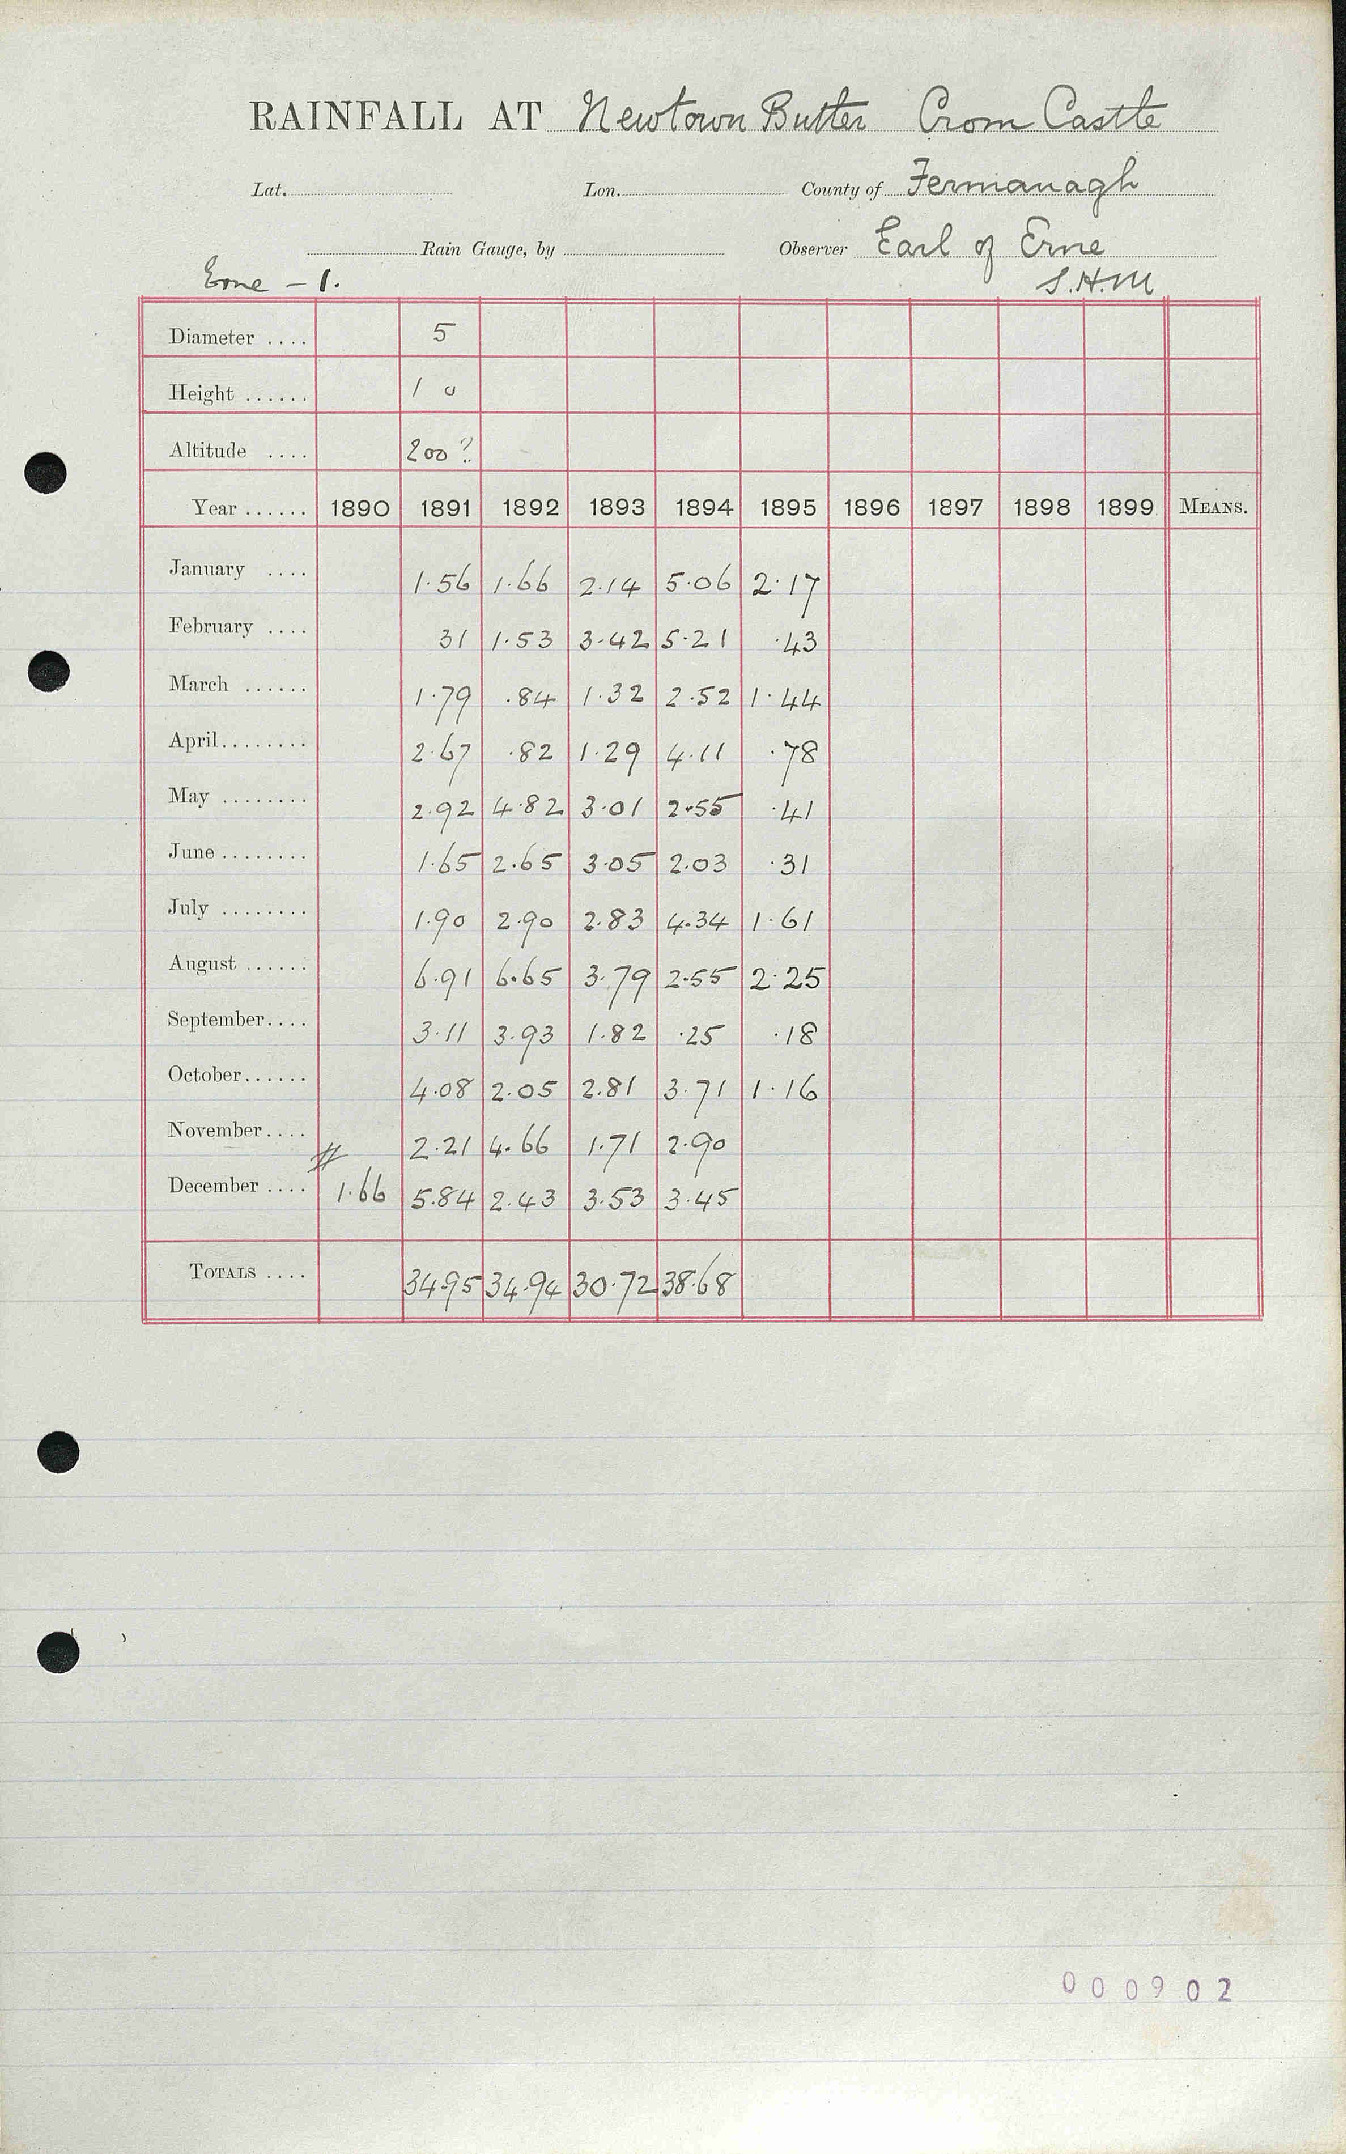 RAINFALL AT Newtown Butler Crom Castle
Lat. Lon. County of Fermanagh
Rain Gauge, by Observer Earl of Erne
Erne - 1. S.H.M
Diameter .... 5
Height ...... 1 0
Altitude .... 200?
Year ...... 1890 1891 1892 1893 1894 1895 1896 1897 1898 1899 MEANS.
January .... 1.56 1.66 2.14 5.06 2.17
February .... 31 1.53 3.42 5.21 .43
March ...... 1.79 .84 1.32 2.52 1.44
April........ 2.67 .82 1.29 4.11 .78
May ........ 2.92 4.82 3.01 2.55 .41
June ........ 1.65 2.65 3.05 2.03 .31
July ........ 1.90 2.90 2.83 4.34 1.61
August ...... 6.91 6.65 3.79 2.55 2.25
September.... 3.11 3.93 1.82 .25 .18
October...... 4.08 2.05 2.81 3.71 1.16
November.... 2.21 4.66 1.71 2.90
December .... # 1.66 5.84 2.43 3.53 3.45
TOTALS .... 34.95 34.94 30.72 38.68
000902